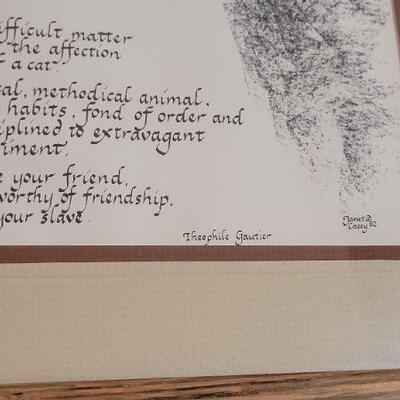 difficult matter
the affection
f a cat.
al, methodical animal,
habits, fond of order and
iplined to extravagant
iment.
e your friend,
worthy of friendship,
your slave.
Theophile Gautier
Janet R.
Casey 82